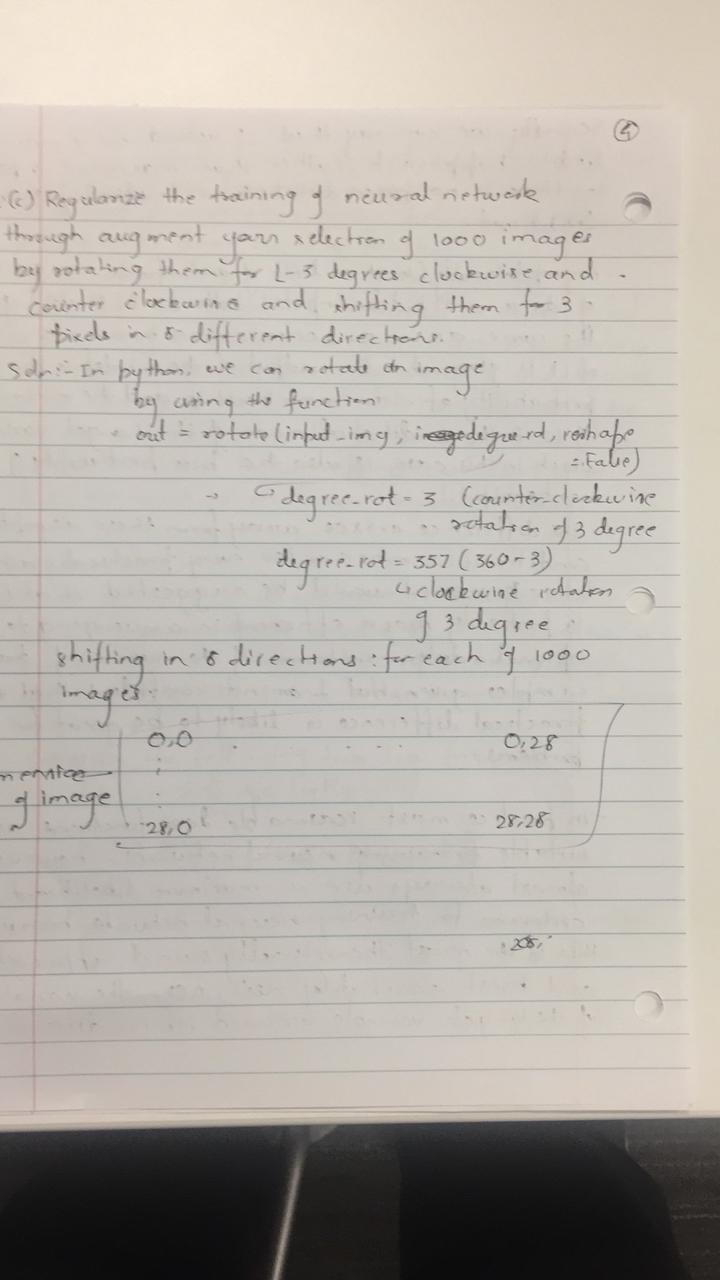 4
(c) Regularize the training of neural network
through augment your selection of 1000 images
by rotating them for 1-3 degrees clockwise and
counter clockwise and shifting them for 3
pixels in 8 different directions.
Soln:- In python, we can rotate an image
by using the function
out = rotate(input_img, , reshape
= False)
→ degree_rot = 3 (counter-clockwise
rotation of 3 degree
degree_rot = 357 (360-3)
↳ clockwise rotation
of 3 degree
shifting in 8 directions : for each of 1000
images:
0,0 . . . . 0,28
of image
28,0 28,28